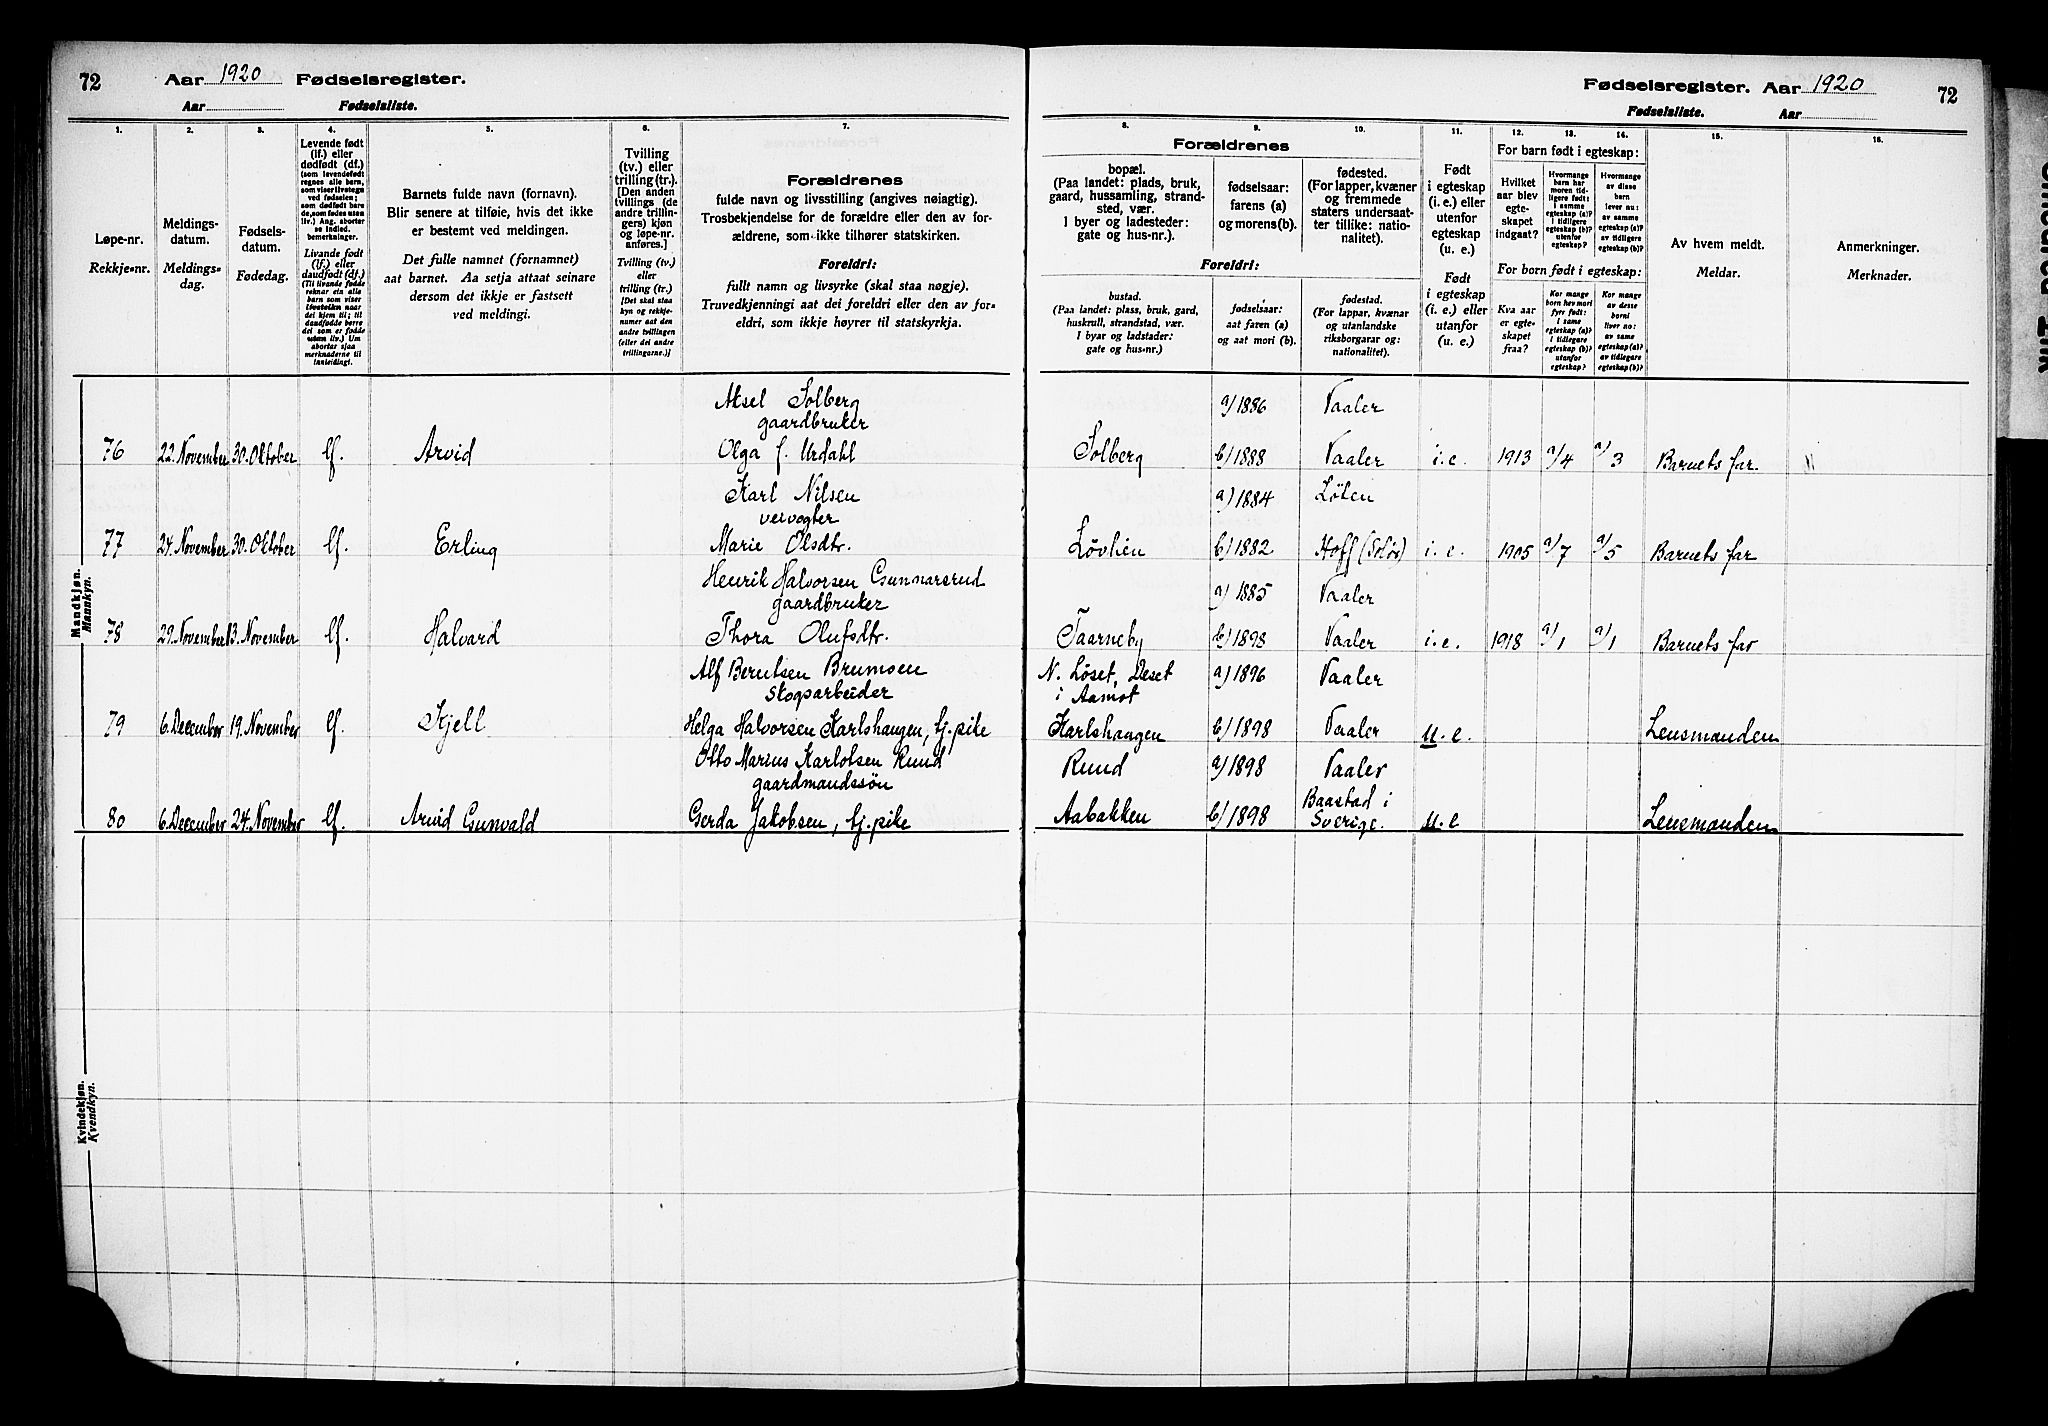 72 Aar 1920 Fødselsregister.
Aar Fødselsliste.
1.
2.
3.
4.
5.
6.
7.
Løpe-nr.
Rekkje-nr.
Meldings-
datum.
Meldings-
dag.
Fødsels-
datum.
Fødedag.
Levende født
(lf.) eller
dødfødt (df.)
(som levendefødt
regnes alle barn,
som viser livstegn
ved fødselen;
som dødfødt bare
de, som fødes uten
liv.) Ang. aborter
se indled.
bemerkninger.
Livande født
(lf.) eller
daudfødt (df.)
(Til livande fødde
reknar ein alle
born som viser
livsteikn naar
dei kjem til; til
daudfødde berre
dei som er fødde
utan liv.) Um
abortar sjaa
merknaderne til
innleidingi.
Barnets fulde navn (fornavn).
Blir senere at tilføie, hvis det ikke
er bestemt ved meldingen.
Det fulle namnet (fornamnet)
aat barnet. Aa setja attaat seinare
dersom det ikkje er fastsett
ved meldingi.
Tvilling
(tv.) eller
trilling (tr.).
[Den anden
tvillings (de
andre trillin-
gers) kjøn
og løpe-nr.
anføres.]
Tvilling (tv.)
eller
trilling (tr.)
[Det skal staa
kyn og rekkje-
numer aat den
andre tvillingen
(eller dei andre
trillingarne.)]
Forældrenes
fulde navn og livsstilling (angives nøiagtig).
Trosbekjendelse for de forældre eller den av for-
ældrene, som ikke tilhører statskirken.
Foreldri:
fullt namn og livsyrke (skal staa nøgje).
Truvedkjenningi aat dei foreldri eller den av for-
eldri, som ikkje høyrer til statskyrkja.
Mandkjøn.
Mannkyn.
Aksel Solberg
gaardbruker
76 22. November 30. Oktober lf. Arvid Olga f. Urdahl
Karl Nilsen
veivogter
77 24. November 30. Oktober lf. Erling Marie Olsdtr.
Henrik Halvorsen Gunnarsrud
gaardbruker
78 29. November 13. November lf. Halvard Thora Olufsdtr.
Alf Berntsen Brumoen
skogsarbeider
79 6. December 19. November lf. Kjell Helga Halvorsen Karlshaugen, tj. pike
Otto Marius Karlotsen Ruud
gaardmandssøn
80 6. December 24. November lf. Arvid Gunvald Gerda Jakobsen, tj. pike
Kvindekjøn.
Kvendkyn.
Fødselsregister. Aar 1920 72
Fødselsliste. Aar
8.
9.
10.
11.
12.
13.
14.
15.
16.
Forældrenes
bopæl.
(Paa landet: plads, bruk,
gaard, hussamling, strand-
sted, vær.
I byer og ladesteder:
gate og hus-nr.).
fødselsaar:
farens (a)
og morens (b).
fødested.
(For lapper, kvæner
og fremmede
staters undersaat-
ter tillike: natio-
nalitet).
Foreldri:
bustad.
(Paa landet: plass, bruk, gard,
huskrull, strandstad, vær.
I byar og ladstader:
gate og hus-nr.)
fødselsaar:
aat faren (a)
og aat mori (b).
fødestad.
(For lappar, kvænar
og utanlandske
riksborgarar og:
nationalitet).
Født
i egteskap
(i. e.) eller
utenfor
egteskap
(u. e.)
Født
i egteskap
(i. e.) eller
utanfor
(u. e.)
For barn født i egteskap:
Hvilket
aar blev
egte-
skapet
indgaat?
Hvormange
barn har
moren tid-
ligere født:
i samme
egteskap (a)?
i tidligere
egteskap (b)?
utenfor
egteskap?
Hvormange
av disse
barn
lever nu:
av samme
egteskap (a)?
av tidligere
egteskap (b)?
For born født i egteskap:
Kva aar
er egte-
skapet
fraa?
Kor mange
born hev mori
fyrr født:
i same
egteskap (a)?
i tidlegare
egteskap (b)?
utanfor
egteskap?
Kor mange
av desse
borni
liver no:
av same
egteskap (a)?
av tidlegare
egteskap (b)?
Av hvem meldt.
Meldar.
Anmerkninger.
Merknader.
a) 1886 Vaaler
Solberg b) 1888 Vaaler i. e. 1913 a/4 a/3 Barnets far.
a) 1884 Løten
Løvlien b) 1882 Hoff (Solør) i. e. 1905 a/7 a/5 Barnets far
a) 1885 Vaaler
Taarneby b) 1898 Vaaler i. e. 1918 a/1 a/1 Barnets far
N. Løset, Deset
i Aamot a) 1896 Vaaler
Karlshaugen b) 1898 Vaaler u. e. Lensmanden
Ruud a) 1898 Vaaler
Aabakken b) 1898 Baastad i
Sverige. u. e Lensmanden